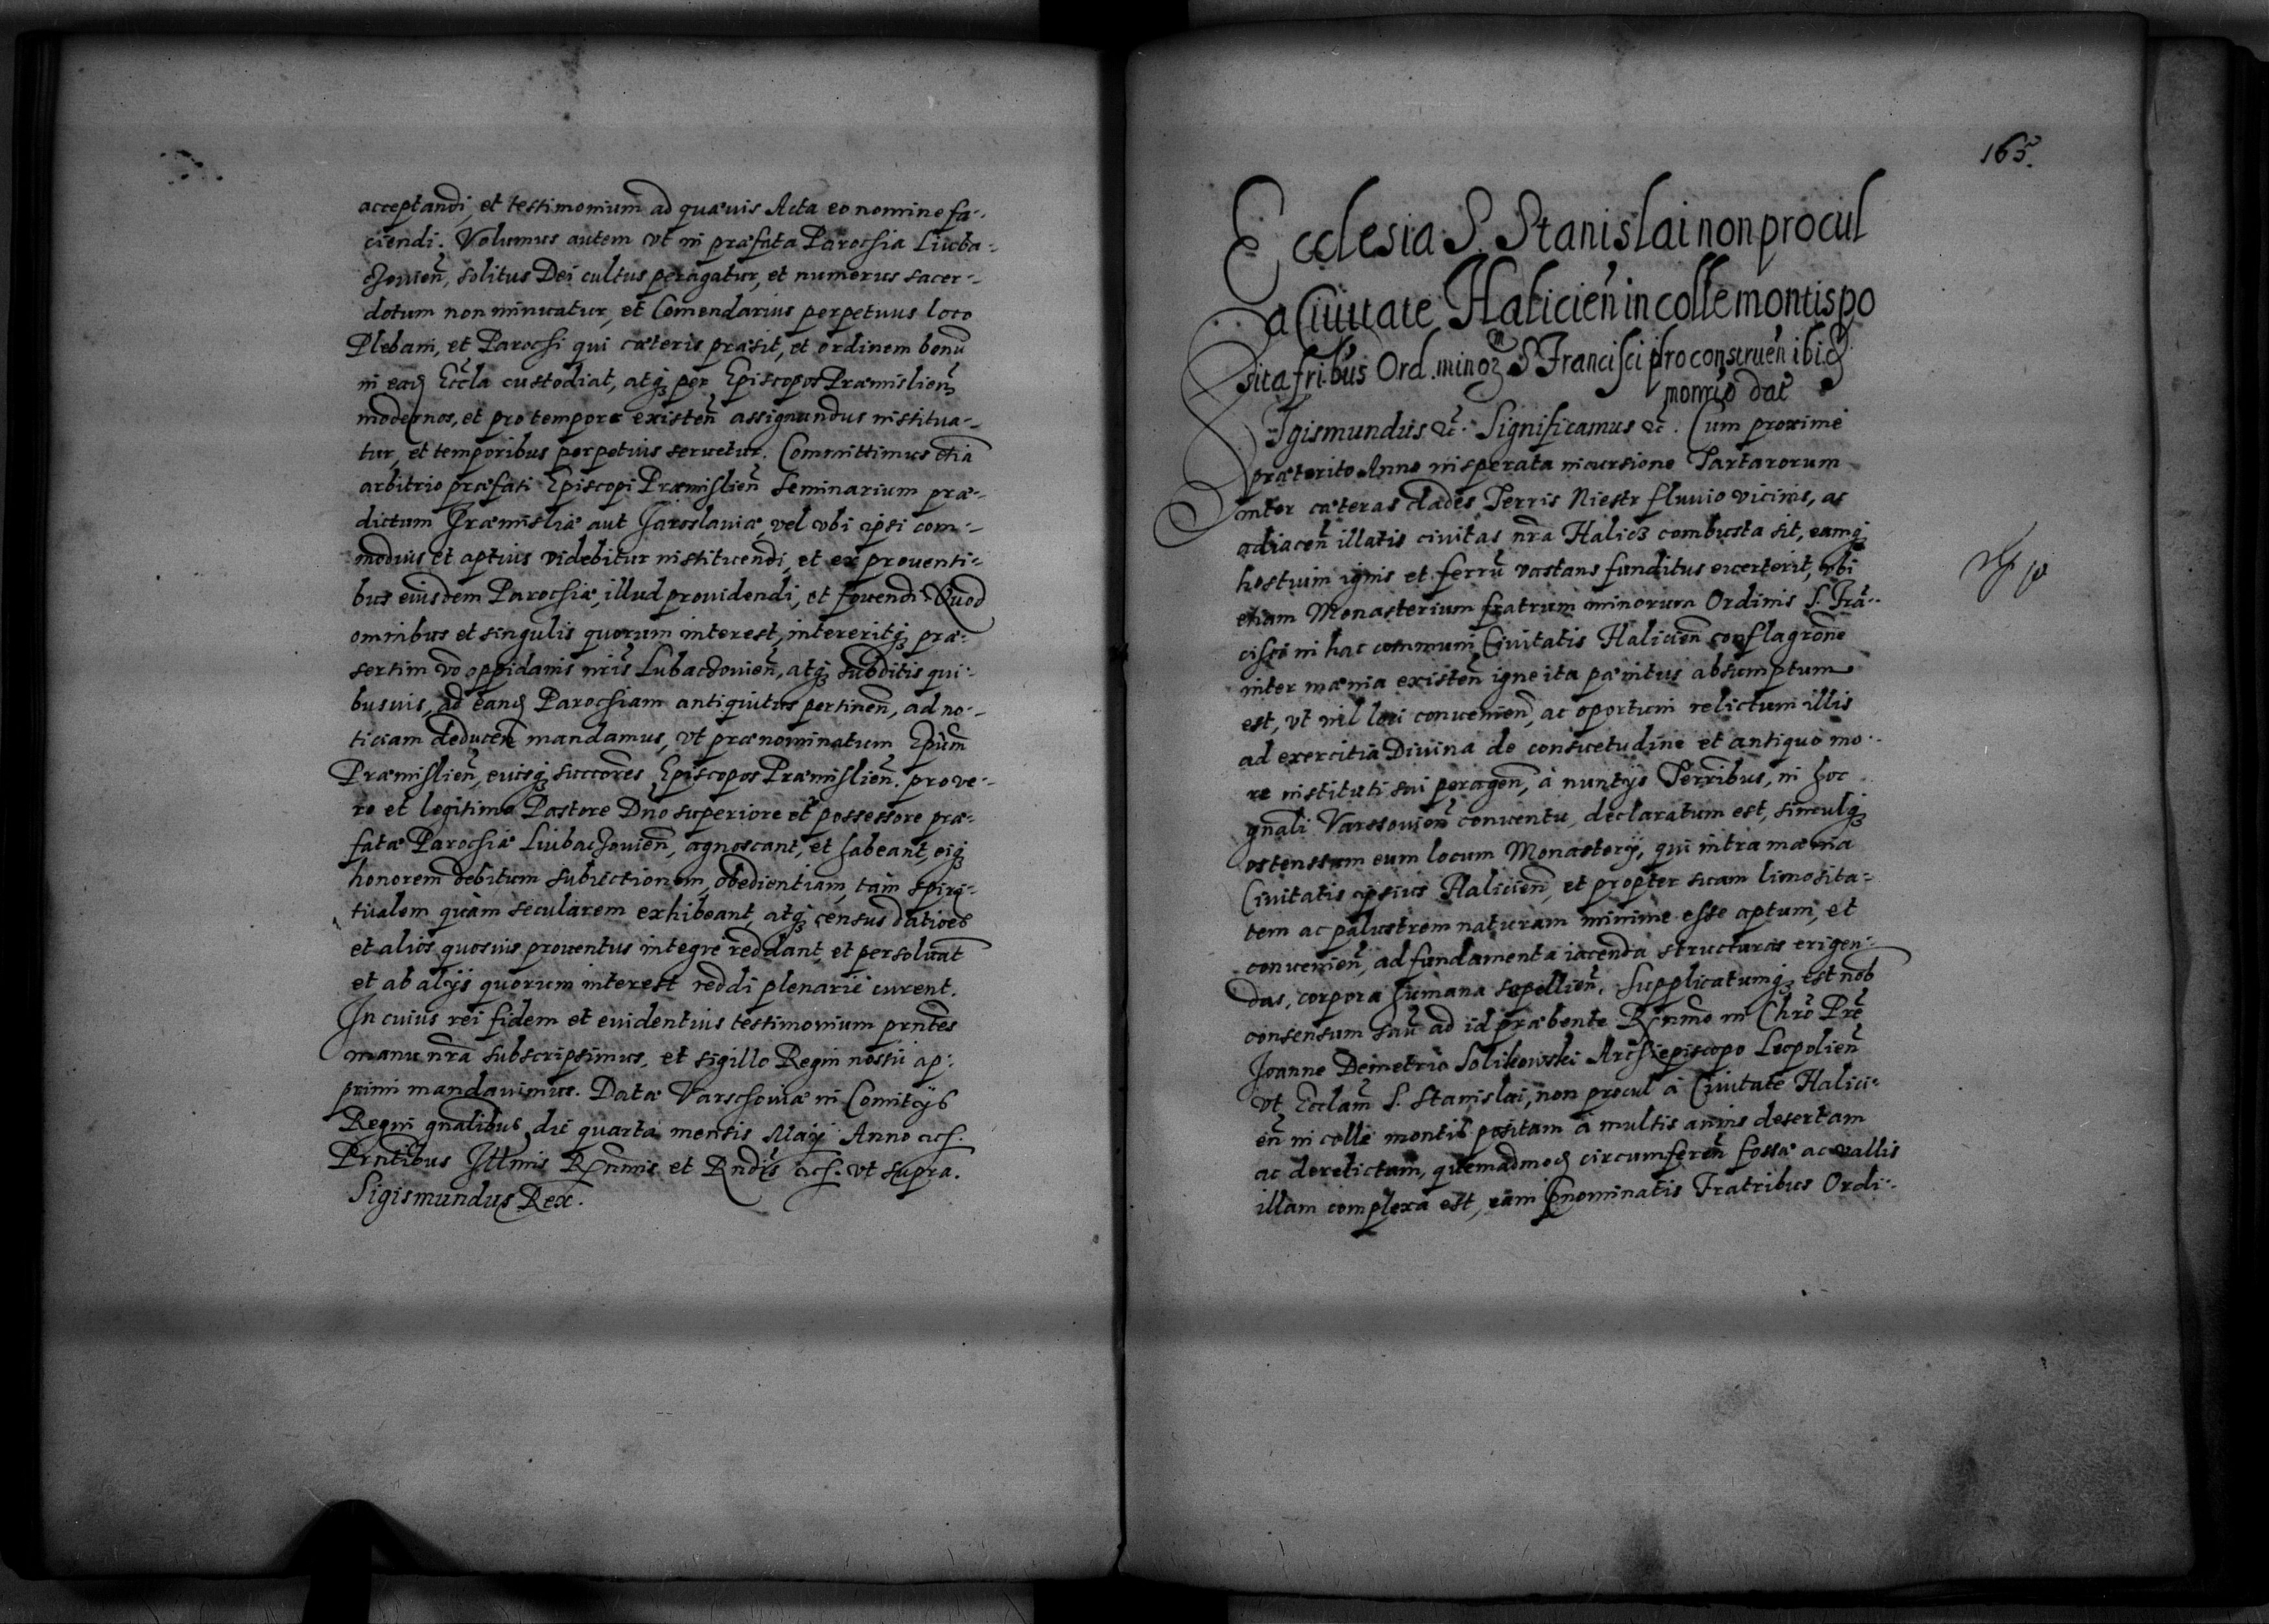 acceptandi, et testimonium ad quæuis Acta eo nomine fa-
ciendi. Volumus autem vt in præfata Parochia Liuba-
czouien̄, solitus Dei cultus peragatur, et numerus sacer-
dotum non minuatur, et Comendarius perpetuus loco
Plebani, et Parochi qui cæteris præsit, et ordinem bonū
in eadꝫ Eccl̄a custodiat, atqꝫ per Episcopos Præmislien̄
modernos, et pro tempore existen̄ assignandus institua-
tur, et temporibus perpetuis seruetur. Committimus etiā
arbitrio præfati Episcopi Præmislien̄ Seminarium præ-
dictum Præmisliæ aut Jaroslauiæ, vel vbi ipsi com-
modius et aptius videbitur instituendi, et ex prouenti-
bus eiusdem Parochiæ, illud prouidendi, et fouendi. Quod
omnibus et singulis quorum interest, intereritqꝫ præ-
sertim vō oppidanis nr̄is Lubaczouien̄, atqꝫ subditis qui-
busuis, ad eandꝫ Parochiam antiquitus pertinen̄, ad no-
ticiam deducen̄ mandamus, vt prænominatum Ep̄um
Præmislien̄, eiusqꝫ succōres Episcopos Præmislien̄. pro ve-
ro et legitimo Pastore Dn̄o superiore et possessore præ-
fatæ Parochiæ Liubaczouien̄, agnoscant, et habeant, eiqꝫ
honorem debitum subiectionem, obedientiam, tam spiri-
tualem quàm secularem exhibeant, atqꝫ census datioēs
et alios quosuis prouentus integrè reddant, et persoluāt
et ab alijs quorum interest reddi plenariè curent.
In cuius rei fidem et euidentius testimonium prn̄tes
manu nr̄a subscripsimus, et sigillo Regni nostri ap-
primi mandauimus. Datæ Varschouiæ in Comitijs
Regni gn̄alibus die quarta mensis Maij Anno etc.
Prn̄tibus Ill̄mis Rn̄mis et Rn̄dis etc. vt supra.
Sigismundus Rex.
165.
Ecclesia S. Stanislai non procul
a Ciuitate Halicien̄ in colle montis po
sita fribus Ord. minoꝝ S Francisci pro construen̄ ibidꝫ
monrio dat̄
Sigismundus etc. Significamus etc. Cum proxime
præterito Anno insperata incursione Tartarorum
inter cæteras clades Terris Niestr fluuio vicinis, ac
adiacen̄ illatis ciuitas nr̄a Halicz combusta sit, eamqꝫ
hostium ignis et ferrū vastans funditus euerterit, vbi
etiam Monasterium fratrum minorum Ordinis S. Frā-
cisci in hac communi Ciuitatis Halicien̄ conflagrōne
inter mænia existen̄ igne ita pænitus absumptum
est, vt nil loci conuenien̄, ac oportuni relictum illis
ad exercitia Diuina de consuetudine et antiquo mo-
re instituti sui peragen̄, à nuntijs Terribus, in hoc
gn̄ali Varssouien̄ conuentu, declaratum est, simulqꝫ
ostenssum eum locum Monasterij, qui intra mænia
Ciuitatis ipsius Halicien̄, et propter suam limosita-
tem ac palustrem naturam minime esse aptum, et
conuenien̄, ad fundamenta iacenda structuras erigen-
das, corpora humana sepellien̄. Supplicatumqꝫ est nob̄
consensum suū ad id præbente Rn̄mo in Chrō Prē
Joanne Demetrio Solikowski Archiepiscopo Leopolien̄
vt Eccl̄am S. Stanislai, non procul à Ciuitate Halici-
en̄ in colle montis positam à multis annis desertam
ac derelictam, quemadmodꝫ circumferen̄ fossa ac vallis
illam complexa est, eam prænominatis Fratribus Ordi-